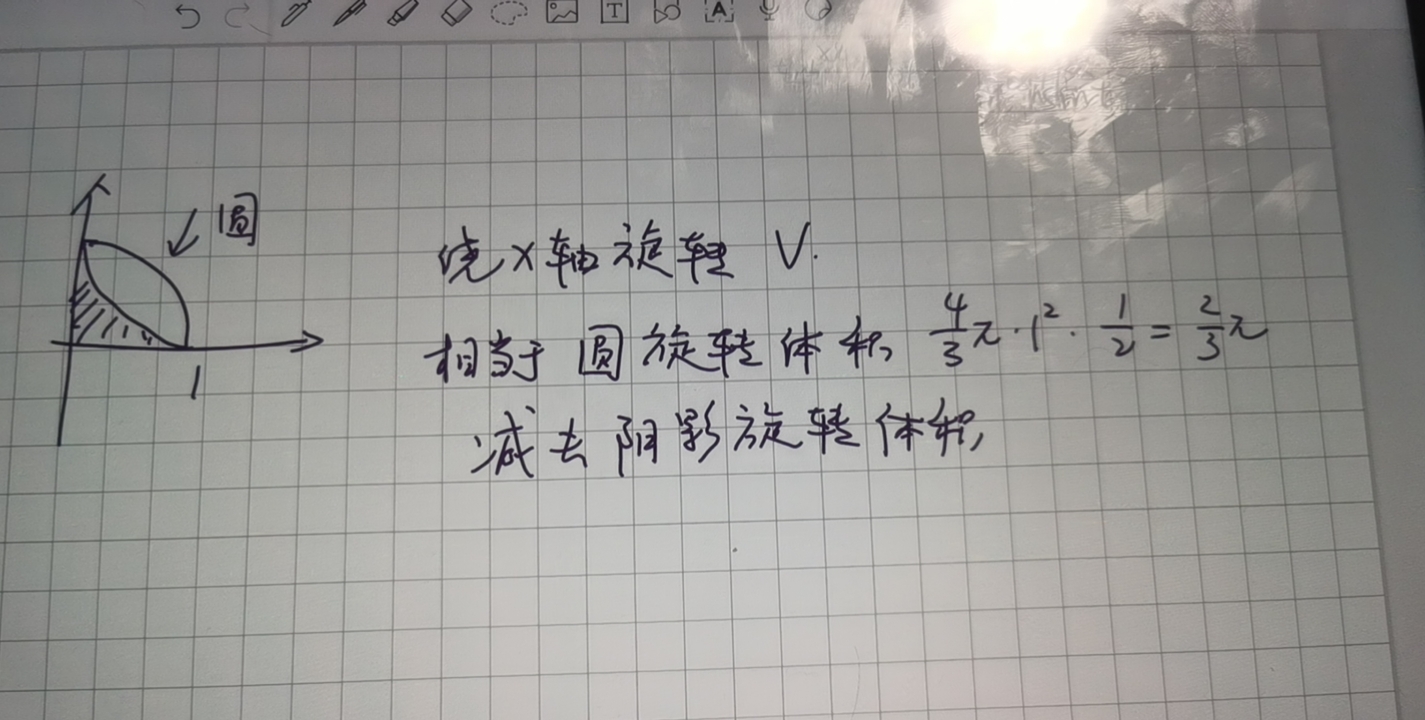 圆
1
绕x轴旋转 V.
相当于 圆 旋转体积 4/3 π · 1² · 1/2 = 2/3 π
减去 阴影旋转体积
T
A